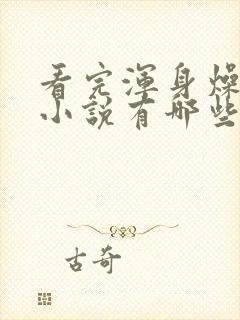 看完渾身燥
小說有哪些
古奇